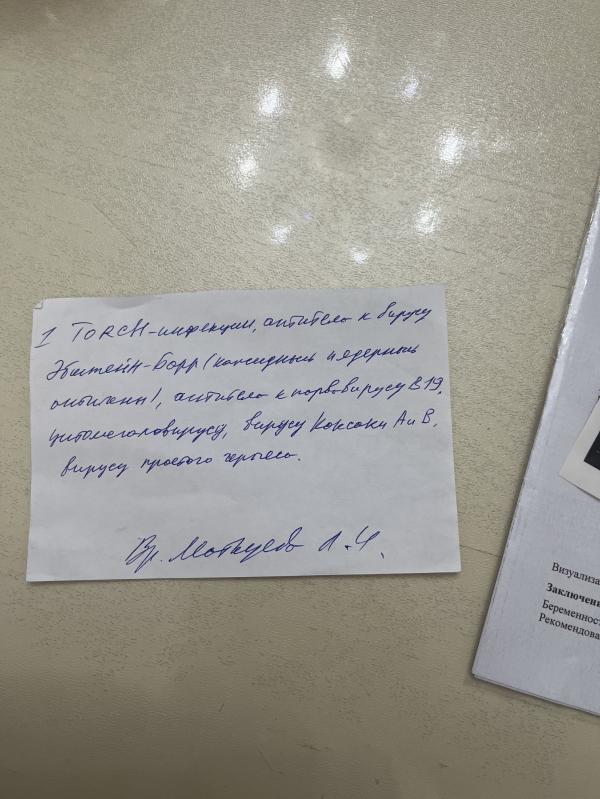 1 TORCH-инфекции, антитела к вирусу
Эбштейн-Борр (капсидные и ядерные
антигены), антитела к парвовирусу B19,
цитомегаловирусу, вирусу Коксаки А и В,
вирусу простого герпеса.
Вр.
Визуализа
Заключени
Беременност
Рекомендова